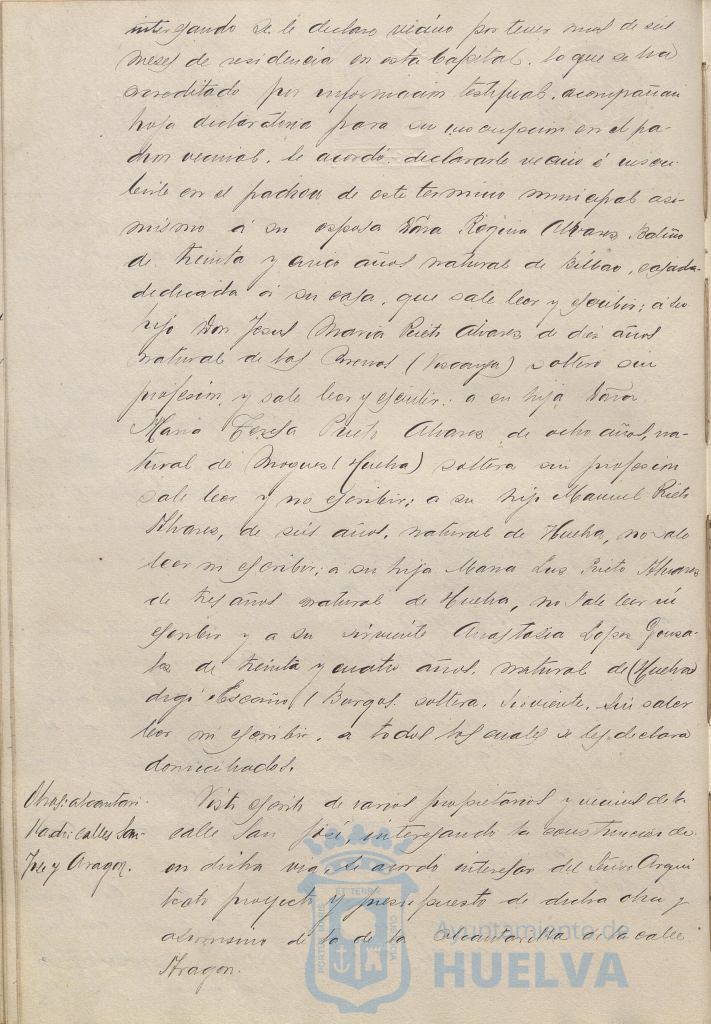 interesando se le declare vecino por tener mas de seis
meses de residencia en esta Capital, lo que se ha
acreditado por informacion testifical, acompañan
hoja declaratoria para su inscripcion en el pa-
dron vecinal. Se acordó declararle vecino é inscri-
birle en el padron de este termino municipal asi-
mismo á su esposa Doña Regina Alvarez
de treinta y cinco años natural de Bilbao, casada
dedicada á su casa, que sabe leer y escribir; á su
hijo Don Jesus Maria Prieto Alvarez de diez años
natural de los (Vizcaya) soltero sin
profesion, y sabe leer y escribir: a su hija Doña
Maria Teresa Prieto Alvarez de ocho años, na-
tural de Moguer (Huelva) soltera sin profesion
sabe leer y no escribir; a su hijo Manuel Prieto
Alvarez, de seis años, natural de Huelva, no sabe
leer ni escribir; a su hija Maria Luz Prieto Alvarez
de tres años natural de Huelva, no sabe leer ni
escribir y a su sirviente Anastasia Lopez Gonza-
lez de treinta y cuatro años, natural de (Huelva
digo (Burgos. soltera, sirviente, sin saber
leer ni escribir, a todos los cuales se les declara
domiciliados.
Obras: alcantari-
llado: calles San
Jose y Aragon.
Visto escrito de varios propietarios y vecinos de la
calle San José, interesando la construccion de
en dicha via, se acordo interesar del Señor Arqui
tecto proyecto y presupuesto de dicha obra y
asimismo de la de la alcantarilla de la calle
Aragon.
PORTUS MARIS
ET TERRÆ
CUSTODIA
Ayuntamiento de
HUELVA